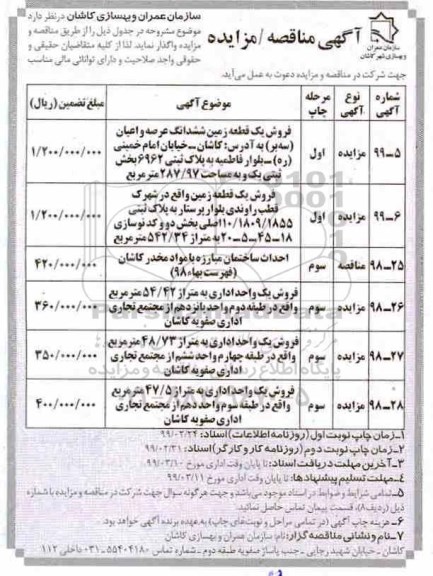 آگهی مناقصه /مزایده
سازمان عمران
و بهسازی شهر کاشان
سازمان عمران و بهسازی کاشان در نظر دارد
موضوع مشروحه در جدول ذیل را از طریق مناقصه و
مزایده واگذار نماید. لذا از کلیه متقاضیان حقیقی و
حقوقی واجد صلاحیت و دارای توانائی مالی مناسب
جهت شرکت در مناقصه و مزایده دعوت به عمل می‌آید.
شماره آگهی نوع آگهی مرحله چاپ موضوع آگهی مبلغ تضمین (ریال)
۵-۹۹ مزایده اول فروش یک قطعه زمین ششدانگ عرصه و اعیان
(سه‌بر) به آدرس: کاشان ـ خیابان امام خمینی
(ره) ـ بلوار فاطمیه به پلاک ثبتی ۶۹۶۲ بخش
ثبتی یک و به مساحت ۲۸۷/۹۷ مترمربع ۱/۲۰۰/۰۰۰/۰۰۰
۶-۹۹ مزایده اول فروش یک قطعه زمین واقع در شهرک
قطب راوندی بلوار پرستار به پلاک ثبتی
۱۰/۱۸۰۹/۱۸۵۵ اصلی بخش دو و کد نوسازی
۱۸-۴۵-۵-۲۰ به متراژ ۵۴۲/۳۴ مترمربع ۱/۲۰۰/۰۰۰/۰۰۰
۲۵-۹۸ مناقصه سوم احداث ساختمان مبارزه با مواد مخدر کاشان
(فهرست بهاء ۹۸) ۴۲۰/۰۰۰/۰۰۰
۲۶-۹۸ مزایده سوم فروش یک واحد اداری به متراژ ۵۴/۴۲ مترمربع
واقع در طبقه دوم واحد پانزدهم از مجتمع تجاری
اداری صفویه کاشان ۳۶۰/۰۰۰/۰۰۰
۲۷-۹۸ مزایده سوم فروش یک واحد اداری به متراژ ۴۸/۷۳ مترمربع
واقع در طبقه چهارم واحد ششم از مجتمع تجاری
اداری صفویه کاشان ۳۵۰/۰۰۰/۰۰۰
۲۸-۹۸ مزایده سوم فروش یک واحد اداری به متراژ ۴۷/۵ مترمربع
واقع در طبقه سوم واحد دهم از مجتمع تجاری
اداری صفویه کاشان ۴۰۰/۰۰۰/۰۰۰
۱ـ زمان چاپ نوبت اول (روزنامه اطلاعات) اسناد: ۹۹/۰۲/۲۴
۲ـ زمان چاپ نوبت دوم (روزنامه کار و کارگر) اسناد: ۹۹/۰۲/۳۱
۳ـ آخرین مهلت دریافت اسناد: تا پایان وقت اداری مورخ ۹۹/۰۳/۱۰
۴ـ مهلت تسلیم پیشنهادها: تا پایان وقت اداری مورخ ۹۹/۰۳/۱۱
۵ـ تمامی شرایط و ضوابط در اسناد موجود می‌باشد و جهت هرگونه سوال جهت شرکت در مناقصه و مزایده با شماره
ذیل (ردیف۸)، قسمت پیمان تماس حاصل نمائید.
۶ـ هزینه چاپ آگهی (در تمامی مراحل و نوبت‌های چاپ) به عهده برنده آگهی خواهد بود.
۷ـ نام و نشانی مناقصه گزار: نام: سازمان عمران و بهسازی کاشان
کاشان ـ خیابان شهید رجایی ـ جنب پاساژ صفویه طبقه دوم ـ شماره تماس ۵۵۴۰۴۱۸۰-۰۳۱ داخلی ۱۱۲